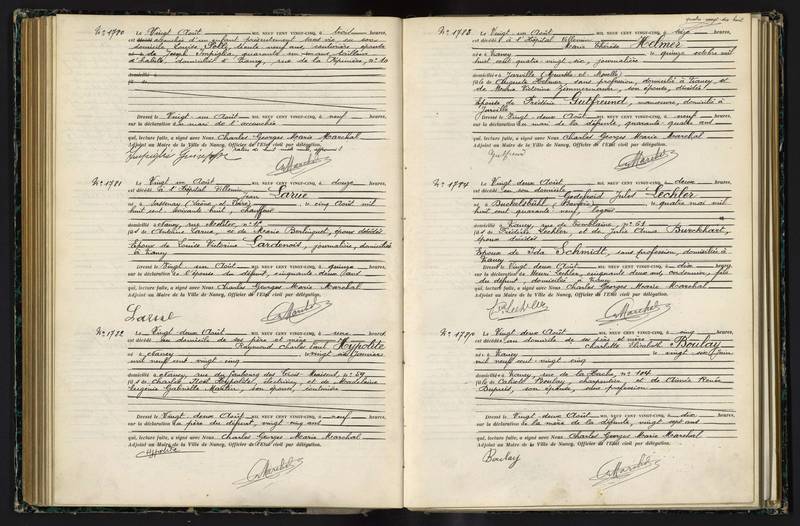 Nº 1780 Le Vingt un Août MIL NEUF CENT VINGT-CINQ, à trois heures,
est accouchée d'un enfant présentement sans vie en son
domicile Louise trente neuf ans, couturière épouse
de Joseph Impiglia quarante un ans tailleur
d'habits, domiciliés à Nancy, rue de la Pépinière, nº 10
domicilié
fil de
Dressé le Vingt un Août MIL NEUF CENT VINGT-CINQ, à neuf heures,
sur la déclaration du mari de l'accouchée
qui, lecture faite, a signé avec Nous Charles Georges Marie Marchal
Adjoint au Maire de la Ville de Nancy, Officier de l'Etat civil par délégation.
Giuseppe
Marchal
Nº 1781 Le Vingt un Août MIL NEUF CENT VINGT-CINQ, à douze heures,
est décédé à l'Hôpital Villemin
Jean Larue
né à (Seine et Oise) le cinq Août mil
huit cent soixante huit, chauffeur
domicilié à Nancy, rue
fils de Larue, et de Marie époux décédés
Epoux de Louise Victorine Lardenois, journalière, domiciliée
à Nancy
Dressé le Vingt un Août MIL NEUF CENT VINGT-CINQ, à quinze heures,
sur la déclaration de l'épouse du défunt, cinquante deux ans
qui, lecture faite, a signé avec Nous Charles Georges Marie Marchal
Adjoint au Maire de la Ville de Nancy, Officier de l'Etat civil par délégation.
Larue
Marchal
Nº 1782 Le Vingt deux Août MIL NEUF CENT VINGT-CINQ, à heures,
est décédé au domicile de ses père et mère
Raymond Charles Paul Hypolite
né à Nancy le vingt six Janvier
mil neuf cent vingt cinq
domicilié à Nancy, rue du Faubourg des Trois Maisons, nº 59
fils de Charles Hypolite, électricien, et de Madeleine
Eugénie Gabrielle son épouse, couturière
Dressé le Vingt deux Août MIL NEUF CENT VINGT-CINQ, à neuf heures,
sur la déclaration du père du défunt, vingt cinq ans
qui, lecture faite, a signé avec Nous Charles Georges Marie Marchal
Adjoint au Maire de la Ville de Nancy, Officier de l'Etat civil par délégation.
Hypolite
Marchal
quatre vingt dix huit
Nº 1783 Le Vingt un Août MIL NEUF CENT VINGT-CINQ, à dix heures,
est décédée à l'Hôpital Villemin
Marie Thérèse Helmer
née à Nancy le quinze octobre mil
huit cent quatre vingt dix, journalière
domiciliée à Jarville (Meurthe et Moselle)
fille de Auguste Helmer, sans profession, domicilié à Nancy et
de Maria Victorine Zimmermann, son épouse, décédée
Epouse de Frédéric Gutfreund, manœuvre, domicilié à
Jarville
Dressé le Vingt deux Août MIL NEUF CENT VINGT-CINQ, à neuf heures,
sur la déclaration du mari de la défunte, quarante quatre ans
qui, lecture faite, a signé avec Nous Charles Georges Marie Marchal
Adjoint au Maire de la Ville de Nancy, Officier de l'Etat civil par délégation.
Marchal
Nº 1784 Le Vingt deux Août MIL NEUF CENT VINGT-CINQ, à deux heures,
est décédé en son domicile
Jules Lechler
né à (Bavière) le quatre mai mil
huit cent quarante neuf,
domicilié à Nancy, rue de nº 51
fils de Frédéric Lechler, et de Julie Anna Burckhart,
époux décédés
Epoux de Ida Schmidt, sans profession, domiciliée à
Nancy
Dressé le Vingt deux Août MIL NEUF CENT VINGT-CINQ, à dix heures,
sur la déclaration de Henri Lechler, cinquante deux ans, cordonnier, fils
du défunt, domicilié à Nancy
qui, lecture faite, a signé avec Nous Charles Georges Marie Marchal
Adjoint au Maire de la Ville de Nancy, Officier de l'Etat civil par délégation.
Lechler
Marchal
Le Vingt deux Août MIL NEUF CENT VINGT-CINQ, à cinq heures,
est décédée au domicile de ses père et mère
Charlotte Elisabeth Boulay
née à Nancy le vingt six Juin
mil neuf cent vingt cinq
domiciliée à Nancy, rue de la Hache, nº 104
fille de Boulay, charpentier, et de Renée
son épouse, sans profession
Dressé le Vingt deux Août MIL NEUF CENT VINGT-CINQ, à dix heures,
sur la déclaration de la mère de la défunte, vingt sept ans
qui, lecture faite, a signé avec Nous Charles Georges Marie Marchal
Adjoint au Maire de la Ville de Nancy, Officier de l'Etat civil par délégation.
Boulay
Marchal